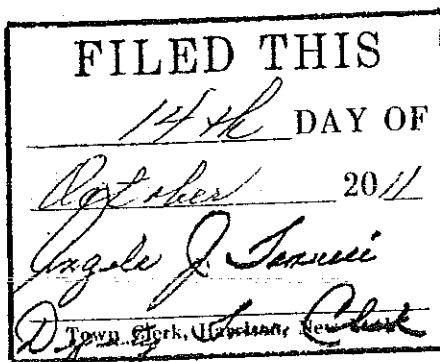 FILED THIS
14th DAY OF
October 2011
Angela J.
Deputy Town Clerk
Town Clerk, Harrison, New York